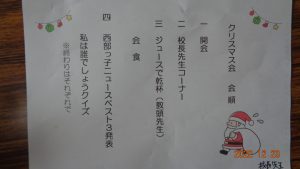 クリスマス会　会順
一　開会
二　校長先生コーナー
三　ジュースで乾杯（教頭先生）
会　食
四　西部っ子ニュースベスト３発表
私は誰でしょうクイズ
※終わりはそれぞれで